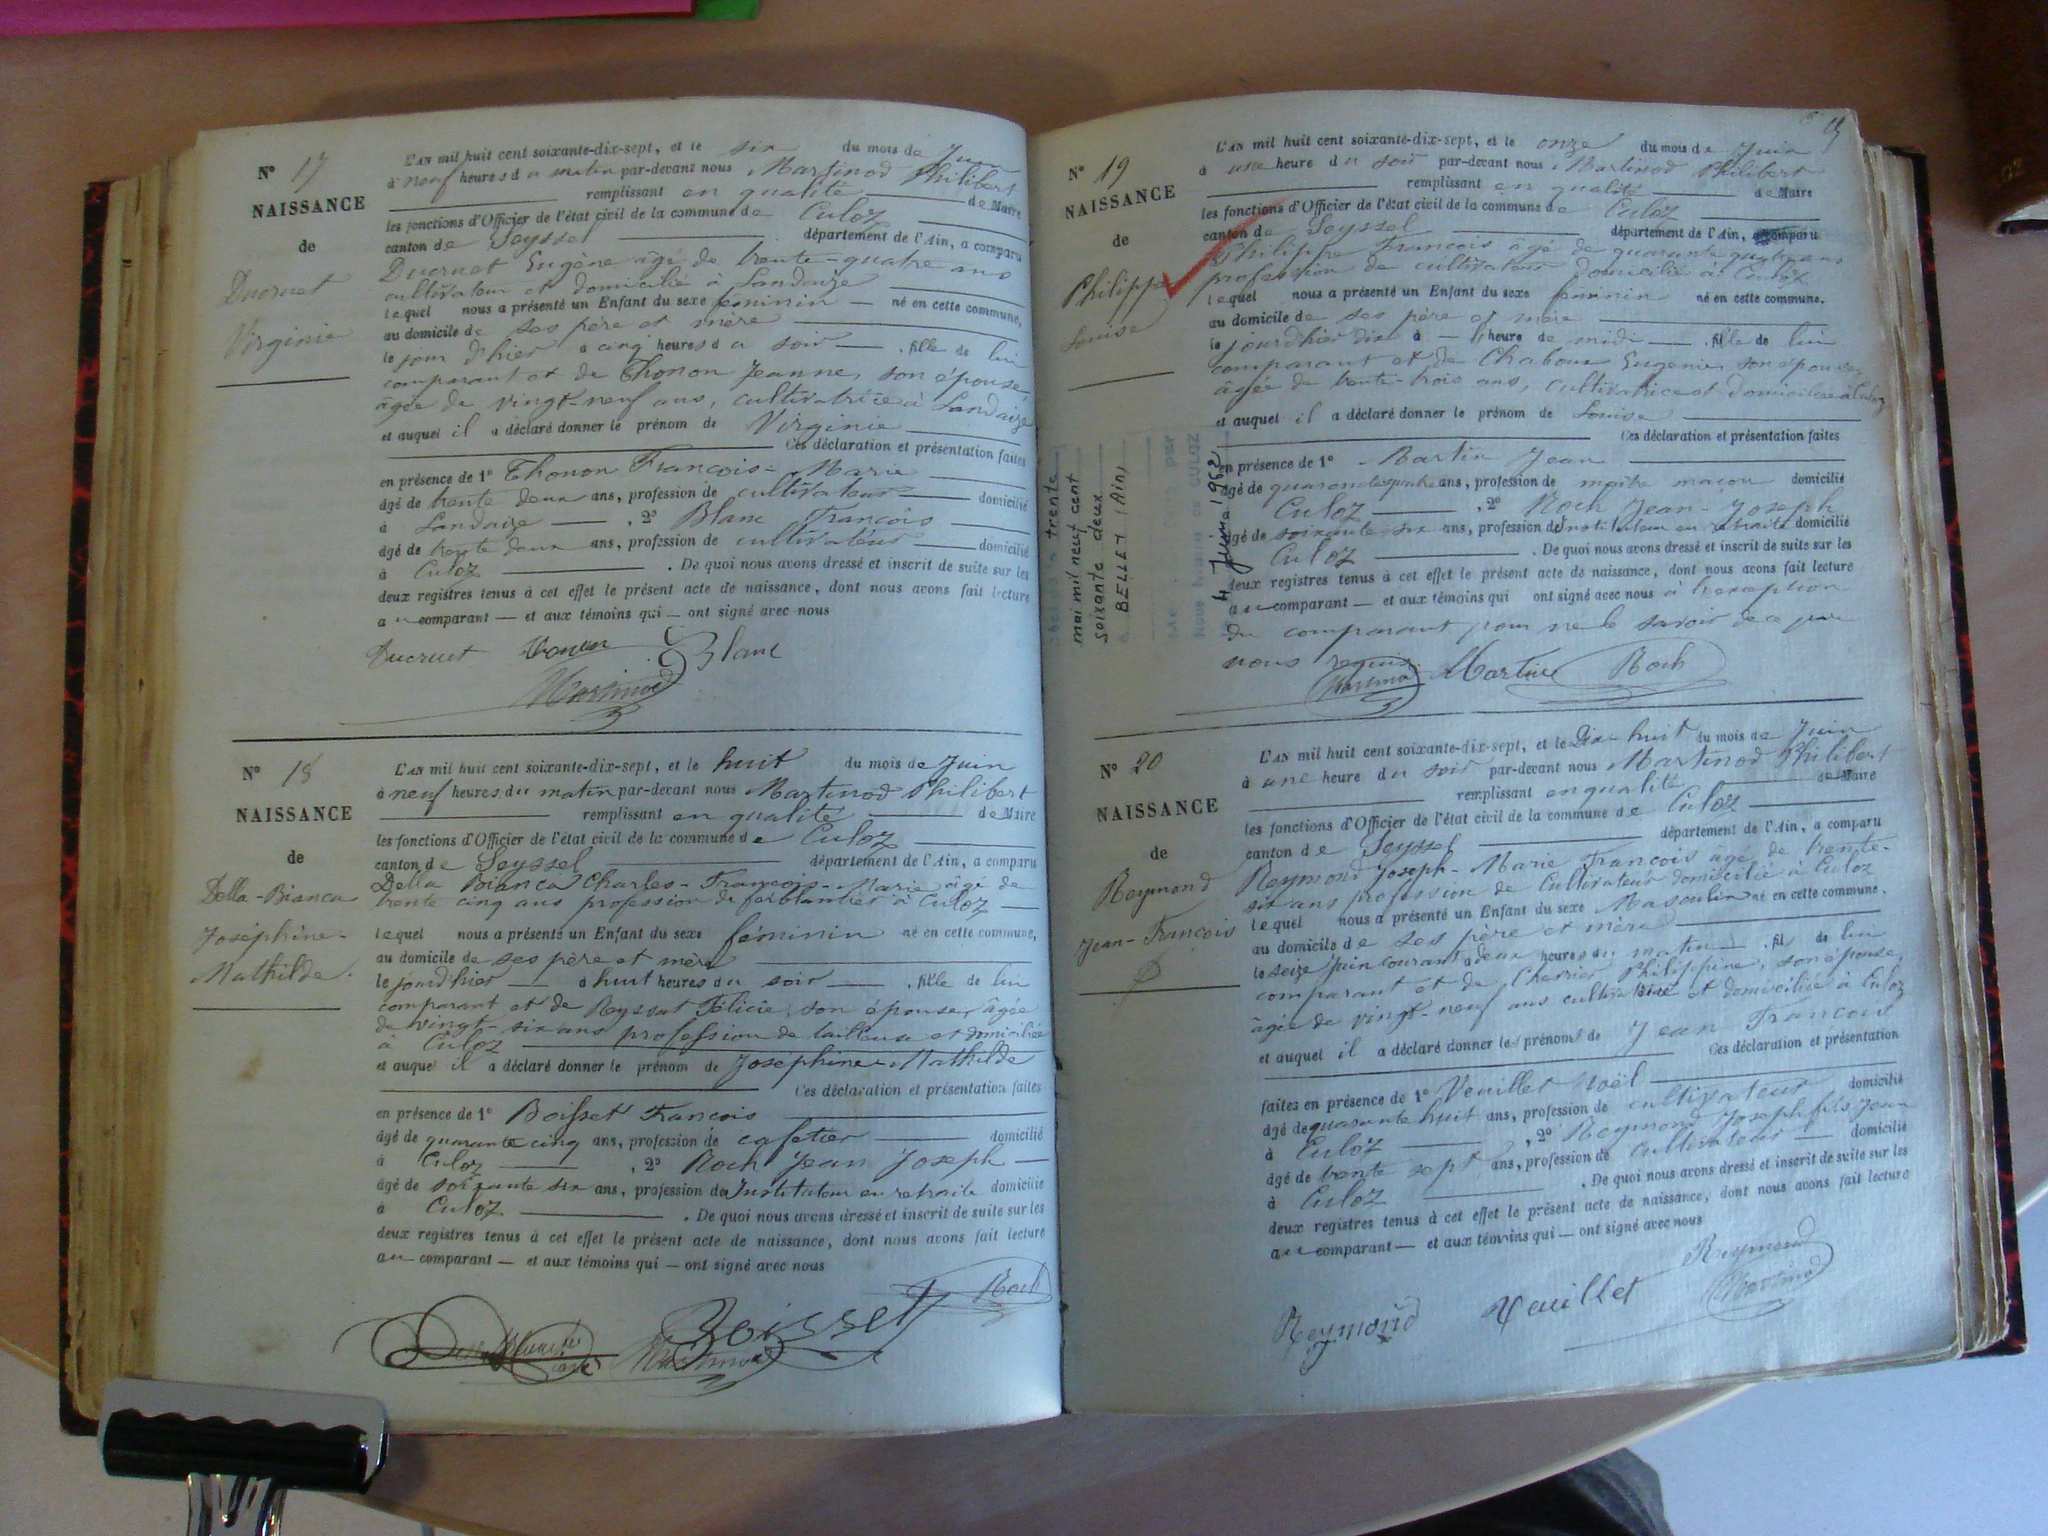 N° 17
NAISSANCE
de
Ducruet
Virginie
L'AN mil huit cent soixante-dix-sept, et le six du mois de Juin
à neuf heures du matin par-devant nous Martinod Philibert
remplissant en qualité de Maire
les fonctions d'Officier de l'état civil de la commune de Culoz
canton de Seyssel département de l'Ain, a comparu
Ducruet Eugène âgé de trente-quatre ans
cultivateur et domicilié à Landaize
lequel nous a présenté un Enfant du sexe féminin né en cette commune,
au domicile de ses père et mère
le jour d'hier à cinq heures du soir fille de lui
comparant et de Thonon Jeanne, son épouse,
âgée de vingt-neuf ans, cultivatrice à Landaize
et auquel il a déclaré donner le prénom de Virginie
Ces déclaration et présentation faites
en présence de 1° Thonon François-Marie
âgé de trente deux ans, profession de cultivateur domicilié
à Landaize , 2° Blanc François
âgé de trente deux ans, profession de cultivateur domicilié
à Culoz . De quoi nous avons dressé et inscrit de suite sur les
deux registres tenus à cet effet le présent acte de naissance, dont nous avons fait lecture
au comparant — et aux témoins qui — ont signé avec nous
Ducruet Blanc
Martinod
N° 18
NAISSANCE
de
Della-Bianca
Joséphine-
Mathilde.
L'AN mil huit cent soixante-dix-sept, et le huit du mois de Juin
à neuf heures du matin par-devant nous Martinod Philibert
remplissant en qualité de Maire
les fonctions d'Officier de l'état civil de la commune de Culoz
canton de Seyssel département de l'Ain, a comparu
Della Bianca Charles-François-Marie âgé de
trente cinq ans profession de ferblantier à Culoz
lequel nous a présenté un Enfant du sexe féminin né en cette commune,
au domicile de ses père et mère
le jourd'hier à huit heures du soir fille de lui
comparant et de Reyssat Félicie, son épouse, âgée
de vingt-six ans profession de tailleuse et domiciliée
à Culoz
et auquel il a déclaré donner le prénom de Joséphine-Mathilde
Ces déclaration et présentation faites
en présence de 1° Boisset François
âgé de quarante cinq ans, profession de cafetier domicilié
à Culoz , 2° Roch Jean Joseph
âgé de soixante six ans, profession d'Instituteur en retraite domicilié
à Culoz . De quoi nous avons dressé et inscrit de suite sur les
deux registres tenus à cet effet le présent acte de naissance, dont nous avons fait lecture
au comparant — et aux témoins qui — ont signé avec nous
Roch
Boisset
Martinod
N° 19
NAISSANCE
de
Philippe
Louise
L'AN mil huit cent soixante-dix-sept, et le onze du mois de Juin
à une heure du soir par-devant nous Martinod Philibert
remplissant en qualité de Maire
les fonctions d'Officier de l'état civil de la commune de Culoz
canton de Seyssel département de l'Ain, a comparu
Philippe François âgé de quarante quatre ans
profession de cultivateur domicilié à Culoz
lequel nous a présenté un Enfant du sexe féminin né en cette commune.
au domicile de ses père et mère
le jourd'hier dix à l'heure de midi fille de lui
comparant et de Chaboux Eugénie, son épouse,
âgée de trente-trois ans, cultivatrice et domiciliée à Culoz
et auquel il a déclaré donner le prénom de Louise
Ces déclaration et présentation faites
en présence de 1° Martin Jean
âgé de quarante quatre ans, profession de maître maçon domicilié
Culoz , 2° Roch Jean-Joseph
âgé de soixante-six ans, profession d'Instituteur en retraite domicilié
Culoz . De quoi nous avons dressé et inscrit de suite sur les
deux registres tenus à cet effet le présent acte de naissance, dont nous avons fait lecture
au comparant — et aux témoins qui ont signé avec nous à l'exception
du comparant pour ne le savoir de ce par
nous requis.
Martinod Martin Roch
trente
mai mil neuf cent
soixante deux
à BELLEY (Ain)
Nous Maire de CULOZ
4 Juin 1962
N° 20
NAISSANCE
de
Reymond
Jean-François
L'AN mil huit cent soixante-dix-sept, et le Dix huit du mois de Juin
à une heure du soir par-devant nous Martinod Philibert
remplissant en qualité de Maire
les fonctions d'Officier de l'état civil de la commune de Culoz
canton de Seyssel département de l'Ain, a comparu
Reymond Joseph-Marie François âgé de trente-
six ans profession de Cultivateur domicilié à Culoz
lequel nous a présenté un Enfant du sexe Masculin né en cette commune.
au domicile de ses père et mère
le seize juin courant à deux heures du matin fils de lui
comparant et de Cherrier Philippine, son épouse,
âgée de vingt-neuf ans cultivatrice et domiciliée à Culoz
et auquel il a déclaré donner les prénoms de Jean François
Ces déclaration et présentation
faites en présence de 1° Veuillet Noël
âgé de quarante huit ans, profession de cultivateur domicilié
à Culoz , 2° Reymond Joseph fils Jean
âgé de trente sept ans, profession de cultivateur domicilié
à Culoz . De quoi nous avons dressé et inscrit de suite sur les
deux registres tenus à cet effet le présent acte de naissance, dont nous avons fait lecture
au comparant — et aux témoins qui — ont signé avec nous
Reymond
Reymond Veuillet Martinod